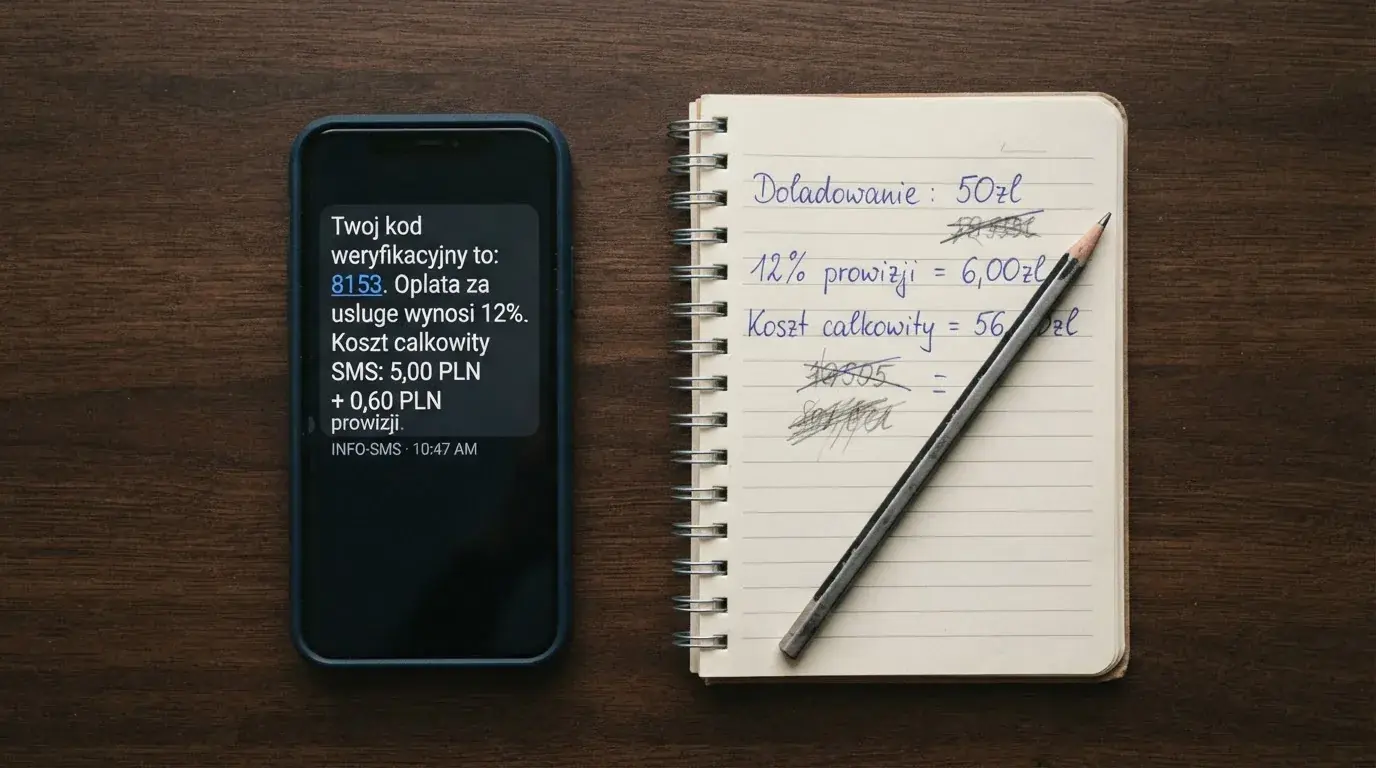 Twoj kod
weryfikacyjny to:
8153. Oplata za
usluge wynosi 12%.
Koszt calkowity
SMS: 5,00 PLN
+ 0,60 PLN
prowizji.
INFO-SMS · 10:47 AM
Doladowanie: 50zl
12% prowizji = 6,00zł
Koszt calkowity =
=